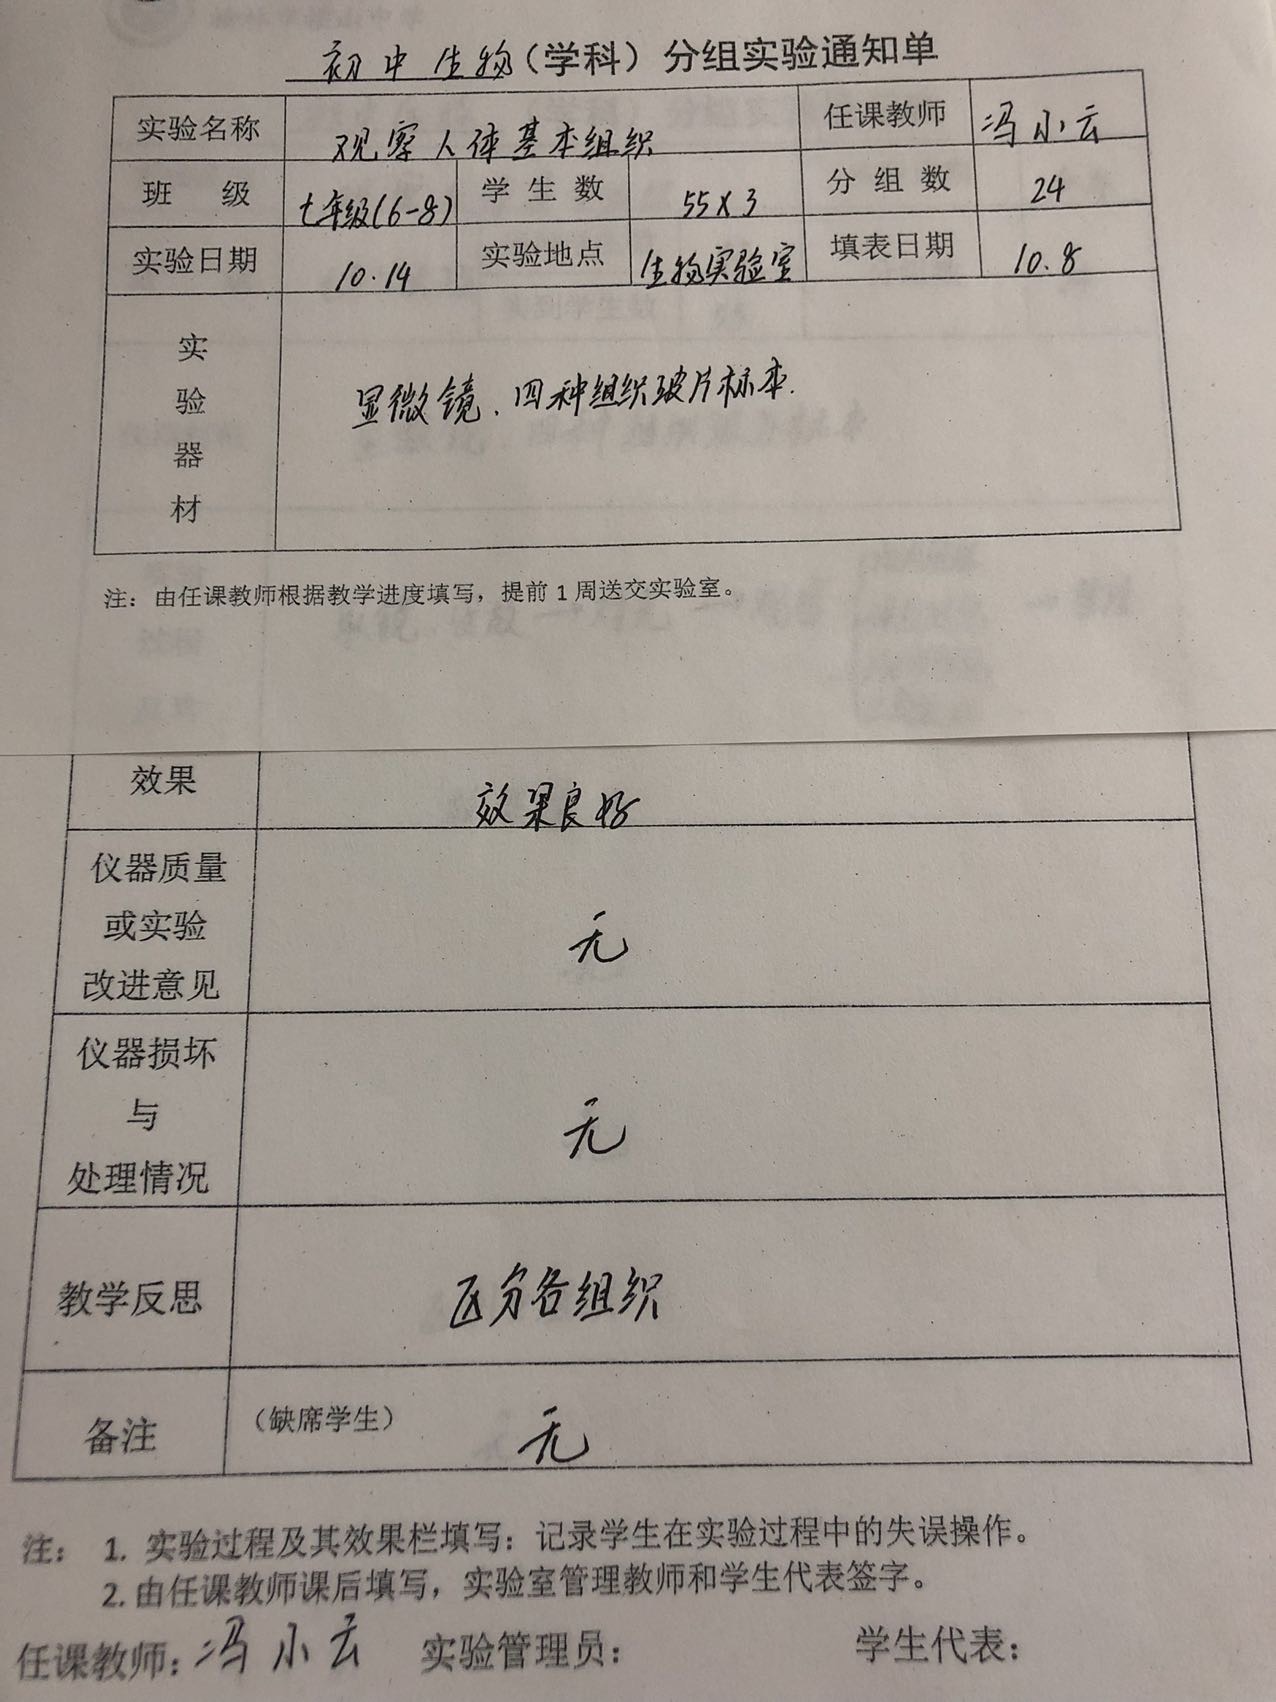 初中生物(学科)分组实验通知单
实验名称 观察人体基本组织 任课教师 冯小云
班 级 七年级(6-8) 学生数 55×3 分组数 24
实验日期 10.14 实验地点 生物实验室 填表日期 10.8
实
验
器
材
显微镜、四种组织玻片标本.
注：由任课教师根据教学进度填写，提前1周送交实验室。
效果 效果良好
仪器质量
或实验
改进意见
无
仪器损坏
与
处理情况
无
教学反思 区分各组织
备注 (缺席学生) 无
注： 1. 实验过程及其效果栏填写：记录学生在实验过程中的失误操作。
2. 由任课教师课后填写，实验室管理教师和学生代表签字。
任课教师：冯小云 实验管理员： 学生代表：